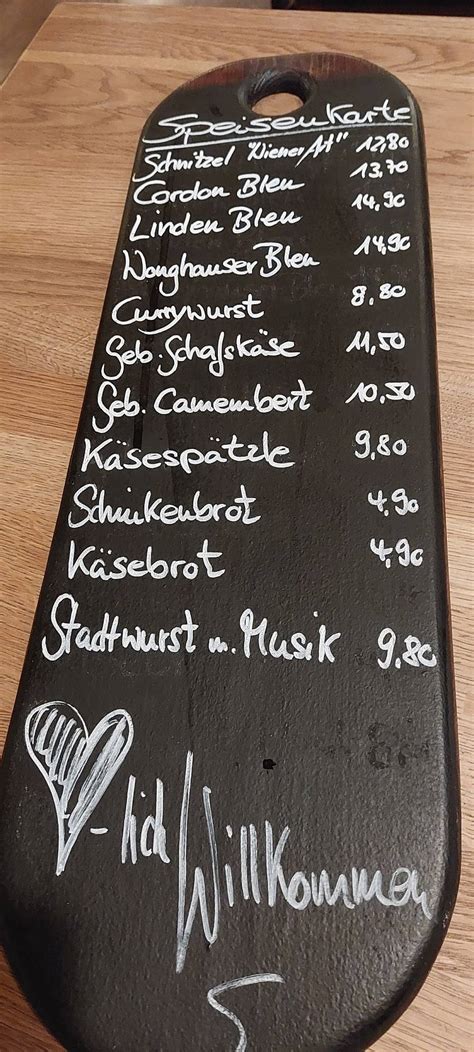 Speisenkarte
Schnitzel "Wiener Art" 12,80
Cordon Bleu 13,70
Linden Bleu 14,90
Wonghauser Bleu 14,90
Currywurst 8,80
Geb. Schafskäse 11,50
Geb. Camembert 10,50
Käsespätzle 9,80
Schinkenbrot 4,90
Käsebrot 4,90
Stadtwurst m. Musik 9,80
-lich
Willkommen